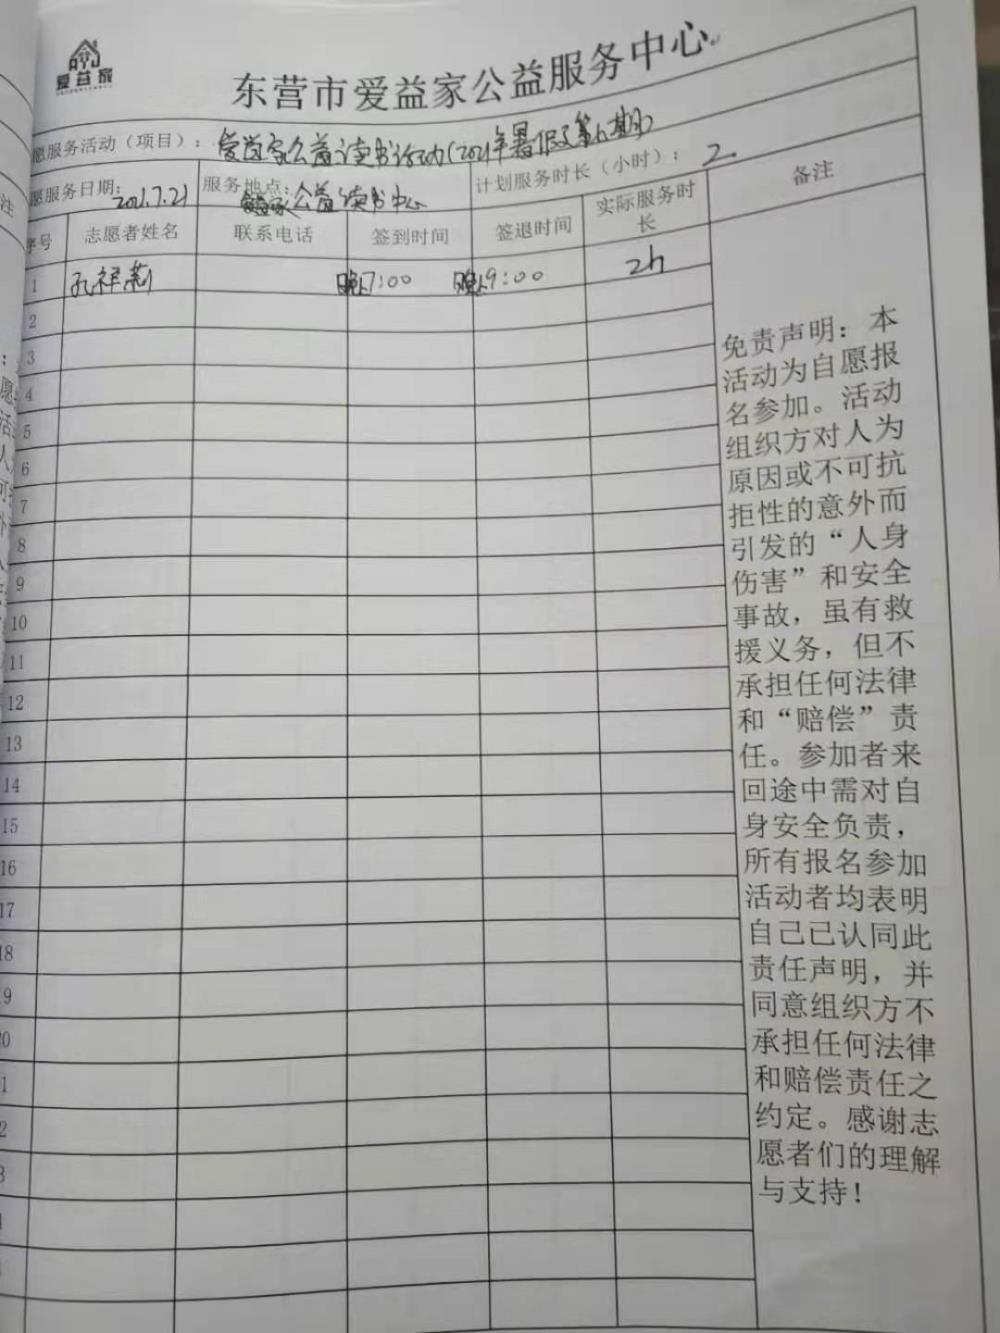 爱益家
东营市爱益家公益服务中心
愿服务活动(项目): 爱益家公益读书活动(2021年暑假第六期)
愿服务日期: 2021.7.21 服务地点: 公益读书中心 计划服务时长(小时): 2. 备注
序号 志愿者姓名 联系电话 签到时间 签退时间 实际服务时
长
1 孔祥莉 晚7:00 晚9:00 2h
2
3
4
5
6
7
8
9
10
11
12
13
14
15
16
17
18
19
20
免责声明:本
活动为自愿报
名参加。活动
组织方对人为
原因或不可抗
拒性的意外而
引发的“人身
伤害”和安全
事故,虽有救
援义务,但不
承担任何法律
和“赔偿”责
任。参加者来
回途中需对自
身安全负责,
所有报名参加
活动者均表明
自己已认同此
责任声明,并
同意组织方不
承担任何法律
和赔偿责任之
约定。感谢志
愿者们的理解
与支持!